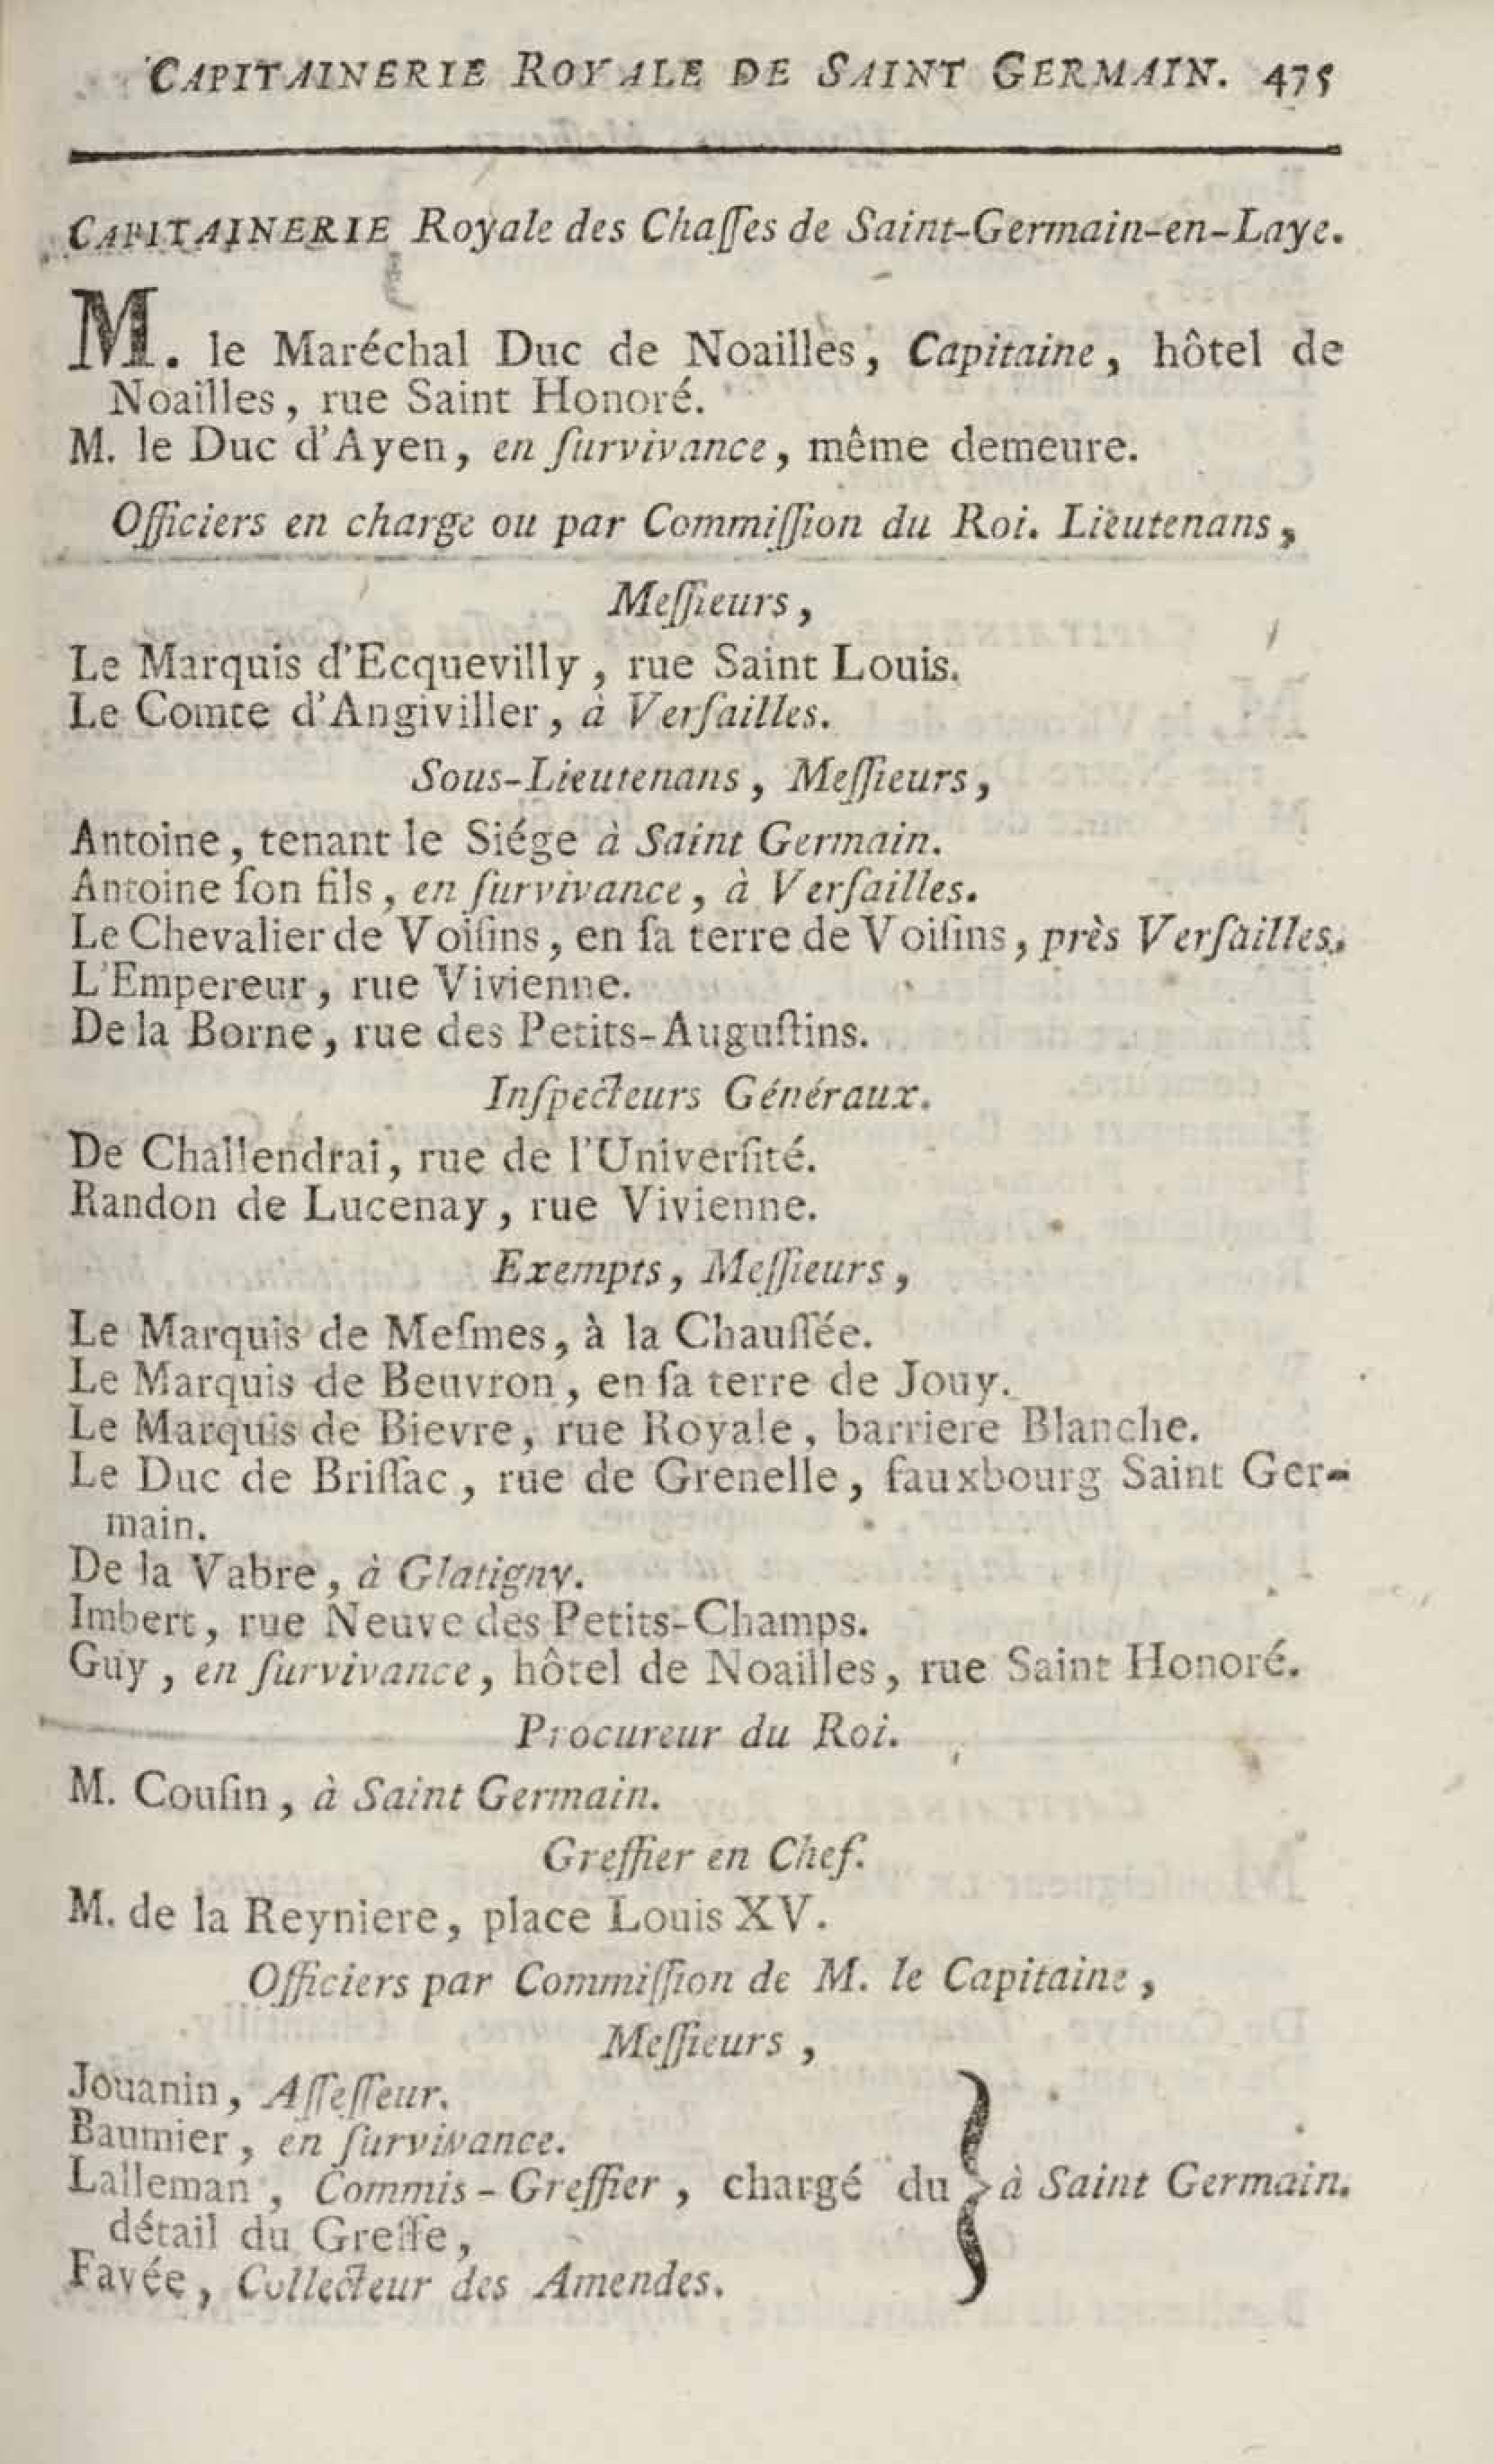 CAPITAINERIE ROYALE DE SAINT GERMAIN. 475
CAPITAINERIE Royale des Chaſſes de Saint-Germain-en-Laye.
M. le Maréchal Duc de Noailles, Capitaine, hôtel de
Noailles, rue Saint Honoré.
M. le Duc d'Ayen, en ſurvivance, même demeure.
Officiers en charge ou par Commiſſion du Roi. Lieutenans,
Meſſieurs,
Le Marquis d'Ecquevilly, rue Saint Louis.
Le Comte d'Angiviller, à Verſailles.
Sous-Lieutenans, Meſſieurs,
Antoine, tenant le Siége à Saint Germain.
Antoine ſon fils, en ſurvivance, à Verſailles.
Le Chevalier de Voiſins, en ſa terre de Voiſins, près Verſailles.
L'Empereur, rue Vivienne.
De la Borne, rue des Petits-Auguſtins.
Inſpecteurs Généraux.
De Challendrai, rue de l'Univerſité.
Randon de Lucenay, rue Vivienne.
Exempts, Meſſieurs,
Le Marquis de Meſmes, à la Chauſſée.
Le Marquis de Beuvron, en ſa terre de Jouy.
Le Marquis de Bievre, rue Royale, barriere Blanche.
Le Duc de Briſſac, rue de Grenelle, fauxbourg Saint Ger-
main.
De la Vabre, à Glatigny.
Imbert, rue Neuve des Petits-Champs.
Guy, en ſurvivance, hôtel de Noailles, rue Saint Honoré.
Procureur du Roi.
M. Couſin, à Saint Germain.
Greffier en Chef.
M. de la Reyniere, place Louis XV.
Officiers par Commiſſion de M. le Capitaine,
Meſſieurs,
Jouanin, Aſſeſſeur.
Baumier, en ſurvivance.
Lalleman, Commis-Greffier, chargé du } à Saint Germain.
détail du Greffe,
Favée, Collecteur des Amendes.